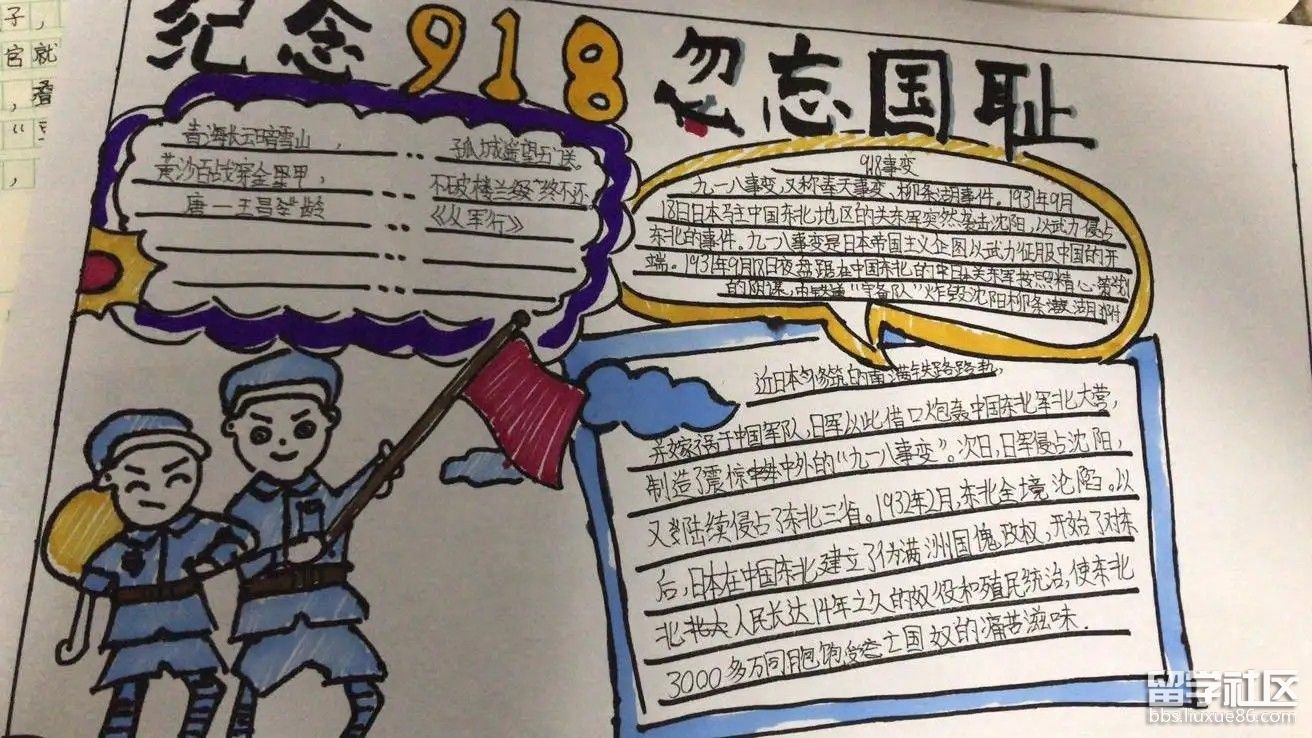 纪念918 勿忘国耻
青海长云暗雪山, 孤城遥望玉门关。
黄沙百战穿金甲, 不破楼兰终不还
唐—王昌龄 《从军行》
918事变
九一八事变,又称奉天事变、柳条湖事件。1931年9月
18日日本驻中国东北地区的关东军突然袭击沈阳,以武力侵占
东北的事件。九一八事变是日本帝国主义企图以武力征服中国的开
端。1931年9月18日夜盘踞在中国东北的日关东军按照精心策划
的阴谋,由铁道“守备队”炸毁沈阳柳条湖附
近日本修筑的南满铁路路轨,
并嫁祸于中国军队,日军以此借口炮轰中国东北军北大营,
制造了震惊中外的“九一八事变”。次日,日军侵占沈阳,
又陆续侵占了东北三省。1932年2月,东北全境沦陷。以
后,日本在中国东北建立了伪满洲国傀政权,开始了对东
北人民长达14年之久的奴役和殖民统治,使东北
3000多万同胞饱受亡国奴的痛苦滋味.
子,
官就
,
“
,
留学社区
bbs.liuxue86.com